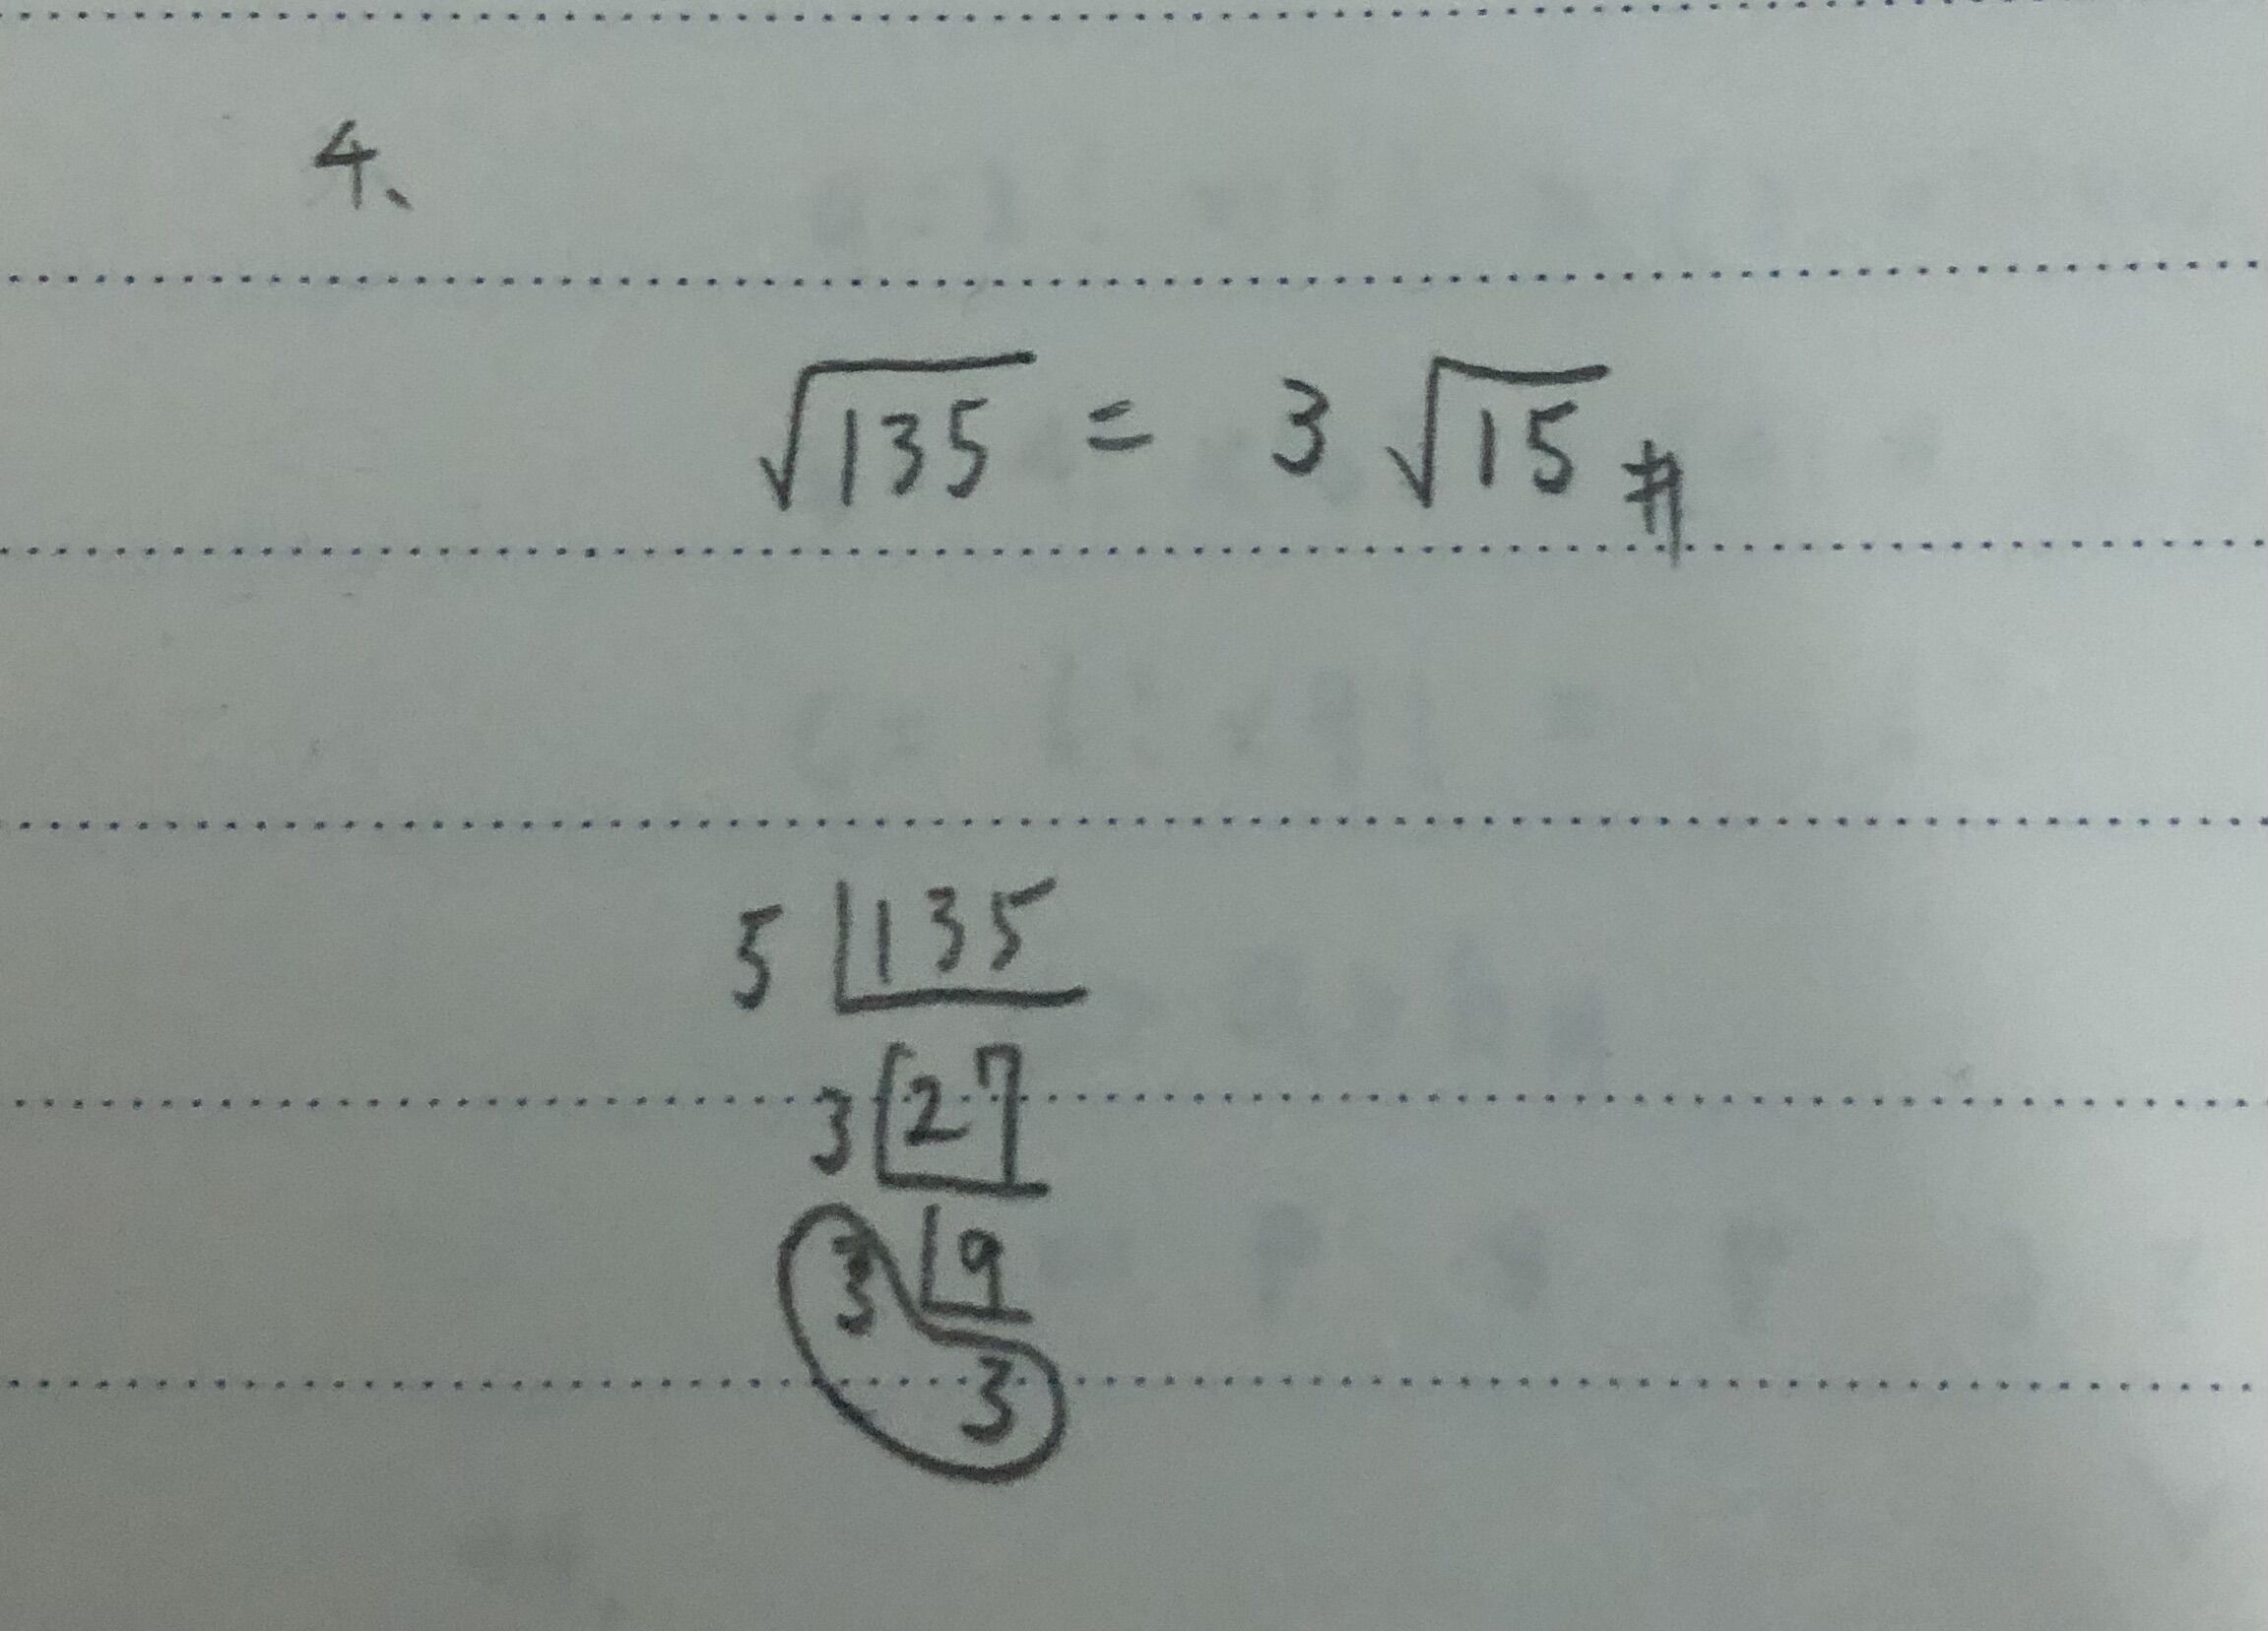 4、
√135 = 3 √15 #
5 |135
3 |27
3 |9
3